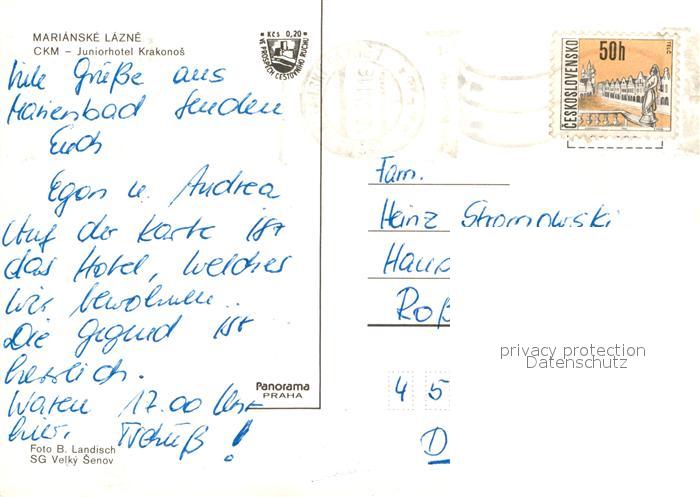 MARIÁNSKÉ LÁZNĚ
CKM – Juniorhotel Krakonoš
Kčs 0,20
VE PROSPĚCH CESTOVNÍHO RUCHU
ČESKOSLOVENSKO
50h
TELČ
Viele Grüße aus
Marienbad senden
Euch
Egon u. Andrea
Auf der Karte ist
das Hotel, welches
wir bewohnen..
Die Gegend ist
herrlich.
Waren 17.00 Uhr
hier. Tschüß!
Fam.
Heinz Stromowski
Haup
Roß
4 5
D
privacy protection
Datenschutz
Panorama
PRAHA
Foto B. Landisch
SG Velký Šenov